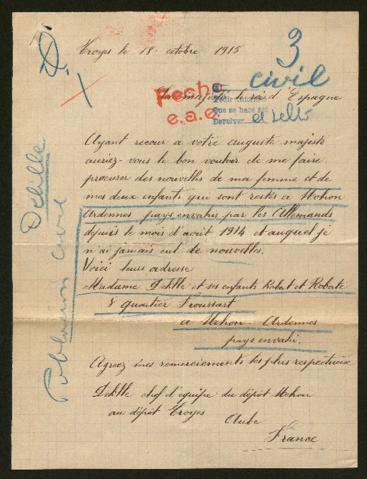 Troyes le 18 octobre 1915
3
civil
A sa majesté le roi d'Espagne
Fecha
e.a.e.
Que se hace
Devolver el sello
Ayant recour à votre auguste majesté
auriez-vous le bon vouloir de me faire
procurer des nouvelles de ma femme et de
mes deux enfants qui sont restés à Mohon
Ardennes pays envahis par les Allemands
depuis le mois d'août 1914 et auquel je
n'ai jamais eut de nouvelles.
Voici leurs adresse
Madame Delille et ses enfants Robert et Roberte
8 quartier Froussart
à Mohon Ardennes
pays envahi.
Agréez mes remerciements les plus respectueux
Delille chef d'équipe du dépôt Mohon
au dépôt Troyes
Aube
France
Delille
Población civil